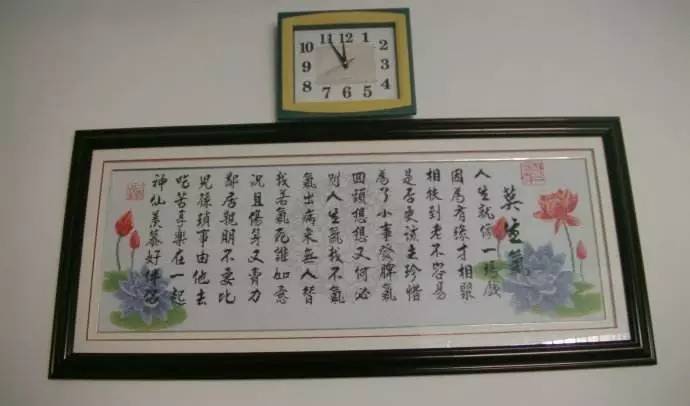 11 12 1
10 2
9 3
8 4
7 6 5
莫生氣
人生就像一場戲
因為有緣才相聚
相扶到老不容易
是否更該去珍惜
為了小事發脾氣
回頭想想又何必
別人生氣我不氣
氣出病來無人替
我若氣死誰如意
況且傷身又費力
鄰居親朋不要比
兒孫瑣事由他去
吃苦享樂在一起
神仙羨慕好伴侶